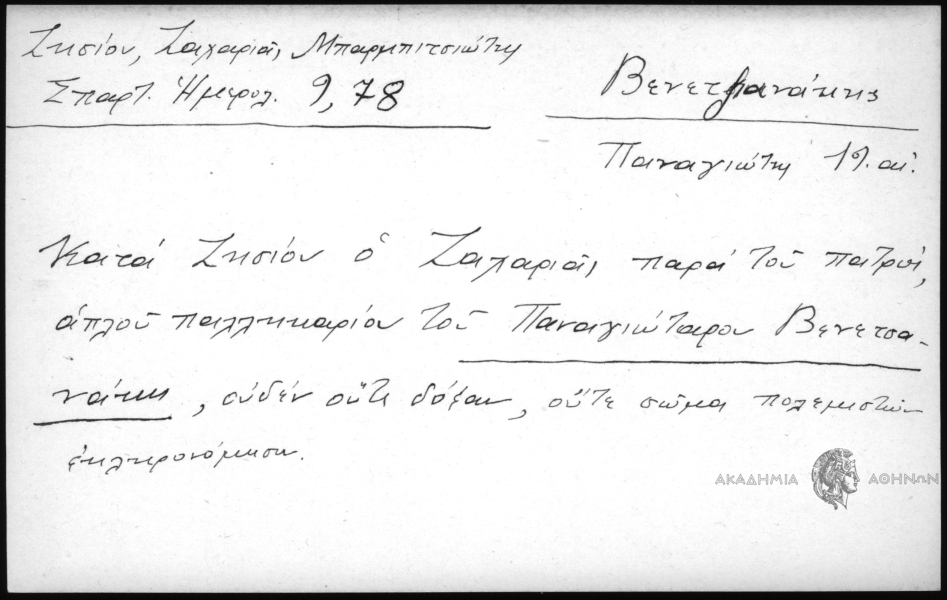 Ζησίου, Ζαχαριᾶς Μπαρμπιτσιώτης
Σπαρτ. Ἡμερολ. 9, 78
Βενετσανάκης
Παναγιώτης 19. αἰ.
Κατά Ζησίου ὁ Ζαχαριᾶς παρά τοῦ πατρός,
ἁπλοῦ παλληκαρίου τοῦ Παναγιώταρου Βενετσα-
νάκη, οὐδέν οὔτε δόξαν, οὔτε σῶμα πολεμιστῶν
ἐκληρονόμησεν.
ΑΚΑΔΗΜΙΑ ΑΘΗΝΩΝ